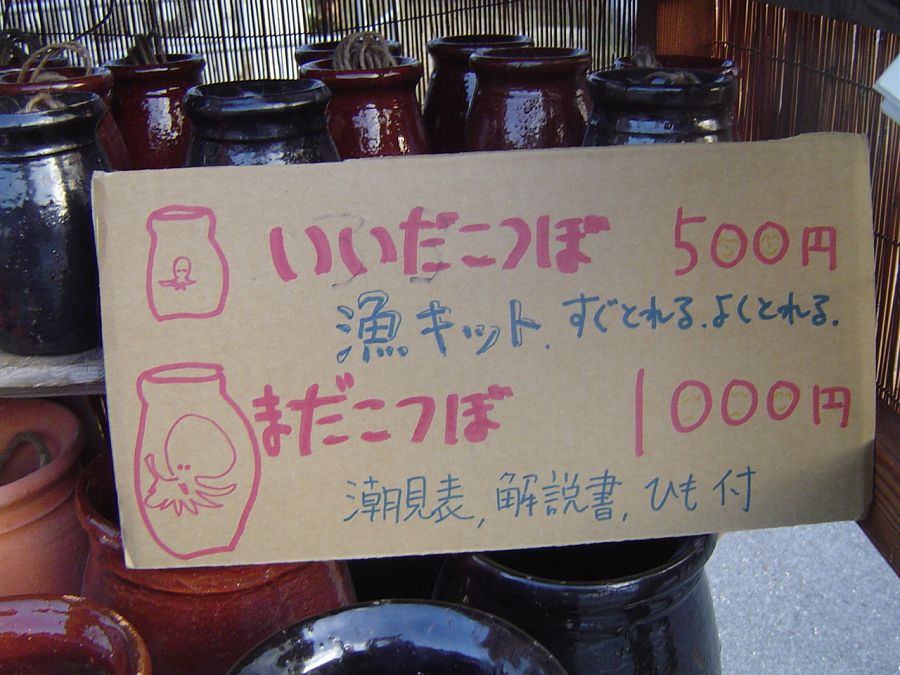 いいだこつぼ 500円
漁キット. すぐとれる.よくとれる.
まだこつぼ 1000円
潮見表,解説書,ひも付